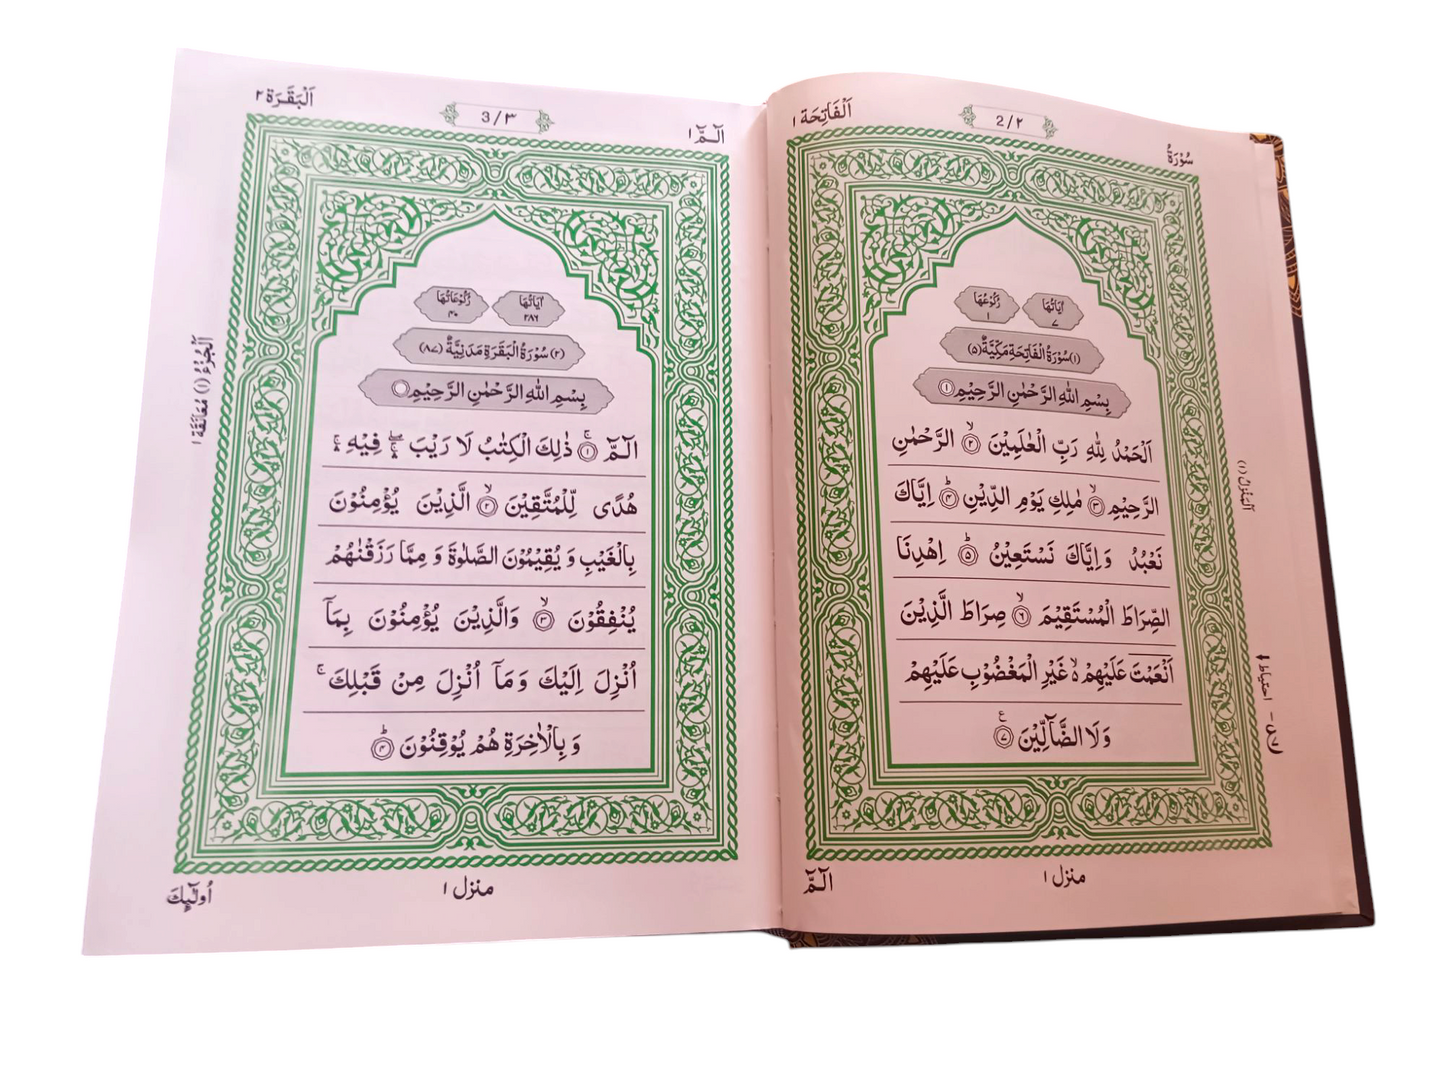 سُوْرَةُ
2/٢
اَلْفَاتِحَة ١
اٰيَاتُهَا ٧
رُكُوْعُهَا ١
(١) سُوْرَةُ الْفَاتِحَةِ مَكِّيَّةٌ (٥)
بِسْمِ اللّٰهِ الرَّحْمٰنِ الرَّحِيْمِ ﴿١﴾
اَلْحَمْدُ لِلّٰهِ رَبِّ الْعٰلَمِيْنَ ﴿٢﴾ۙ الرَّحْمٰنِ
الرَّحِيْمِ ﴿٣﴾ۙ مٰلِكِ يَوْمِ الدِّيْنِ ﴿٤﴾ؕ اِيَّاكَ
نَعْبُدُ وَاِيَّاكَ نَسْتَعِيْنُ ﴿٥﴾ؕ اِهْدِنَا
الصِّرَاطَ الْمُسْتَقِيْمَ ﴿٦﴾ۙ صِرَاطَ الَّذِيْنَ
اَنْعَمْتَ عَلَيْهِمْ ۙ۬ غَيْرِ الْمَغْضُوْبِ عَلَيْهِمْ
وَلَا الضَّآلِّيْنَ ﴿٧﴾ ع
اَلْمَنْزِلُ (١)
احتياط
منزل ١
الٓمّٓ
الٓمّٓ ١
3/٣
اَلْبَقَرَة ٢
اٰيَاتُهَا ٢٨٦
رُكُوْعَاتُهَا ٤٠
(٢) سُوْرَةُ الْبَقَرَةِ مَدَنِيَّةٌ (٨٧)
بِسْمِ اللّٰهِ الرَّحْمٰنِ الرَّحِيْمِ
الٓمّٓ ﴿١﴾ۚ ذٰلِكَ الْكِتٰبُ لَا رَيْبَ ۛۖۚ فِيْهِ ۛۚ
هُدًى لِّلْمُتَّقِيْنَ ﴿٢﴾ۙ الَّذِيْنَ يُؤْمِنُوْنَ
بِالْغَيْبِ وَ يُقِيْمُوْنَ الصَّلٰوةَ وَ مِمَّا رَزَقْنٰهُمْ
يُنْفِقُوْنَ ﴿٣﴾ۙ وَالَّذِيْنَ يُؤْمِنُوْنَ بِمَآ
اُنْزِلَ اِلَيْكَ وَمَآ اُنْزِلَ مِنْ قَبْلِكَ ۚ
وَ بِالْاٰخِرَةِ هُمْ يُوْقِنُوْنَ ﴿٤﴾ؕ
اَلْجُزْءُ (١) مُعَانَقَة ١
منزل ١
اُولٰٓئِكَ